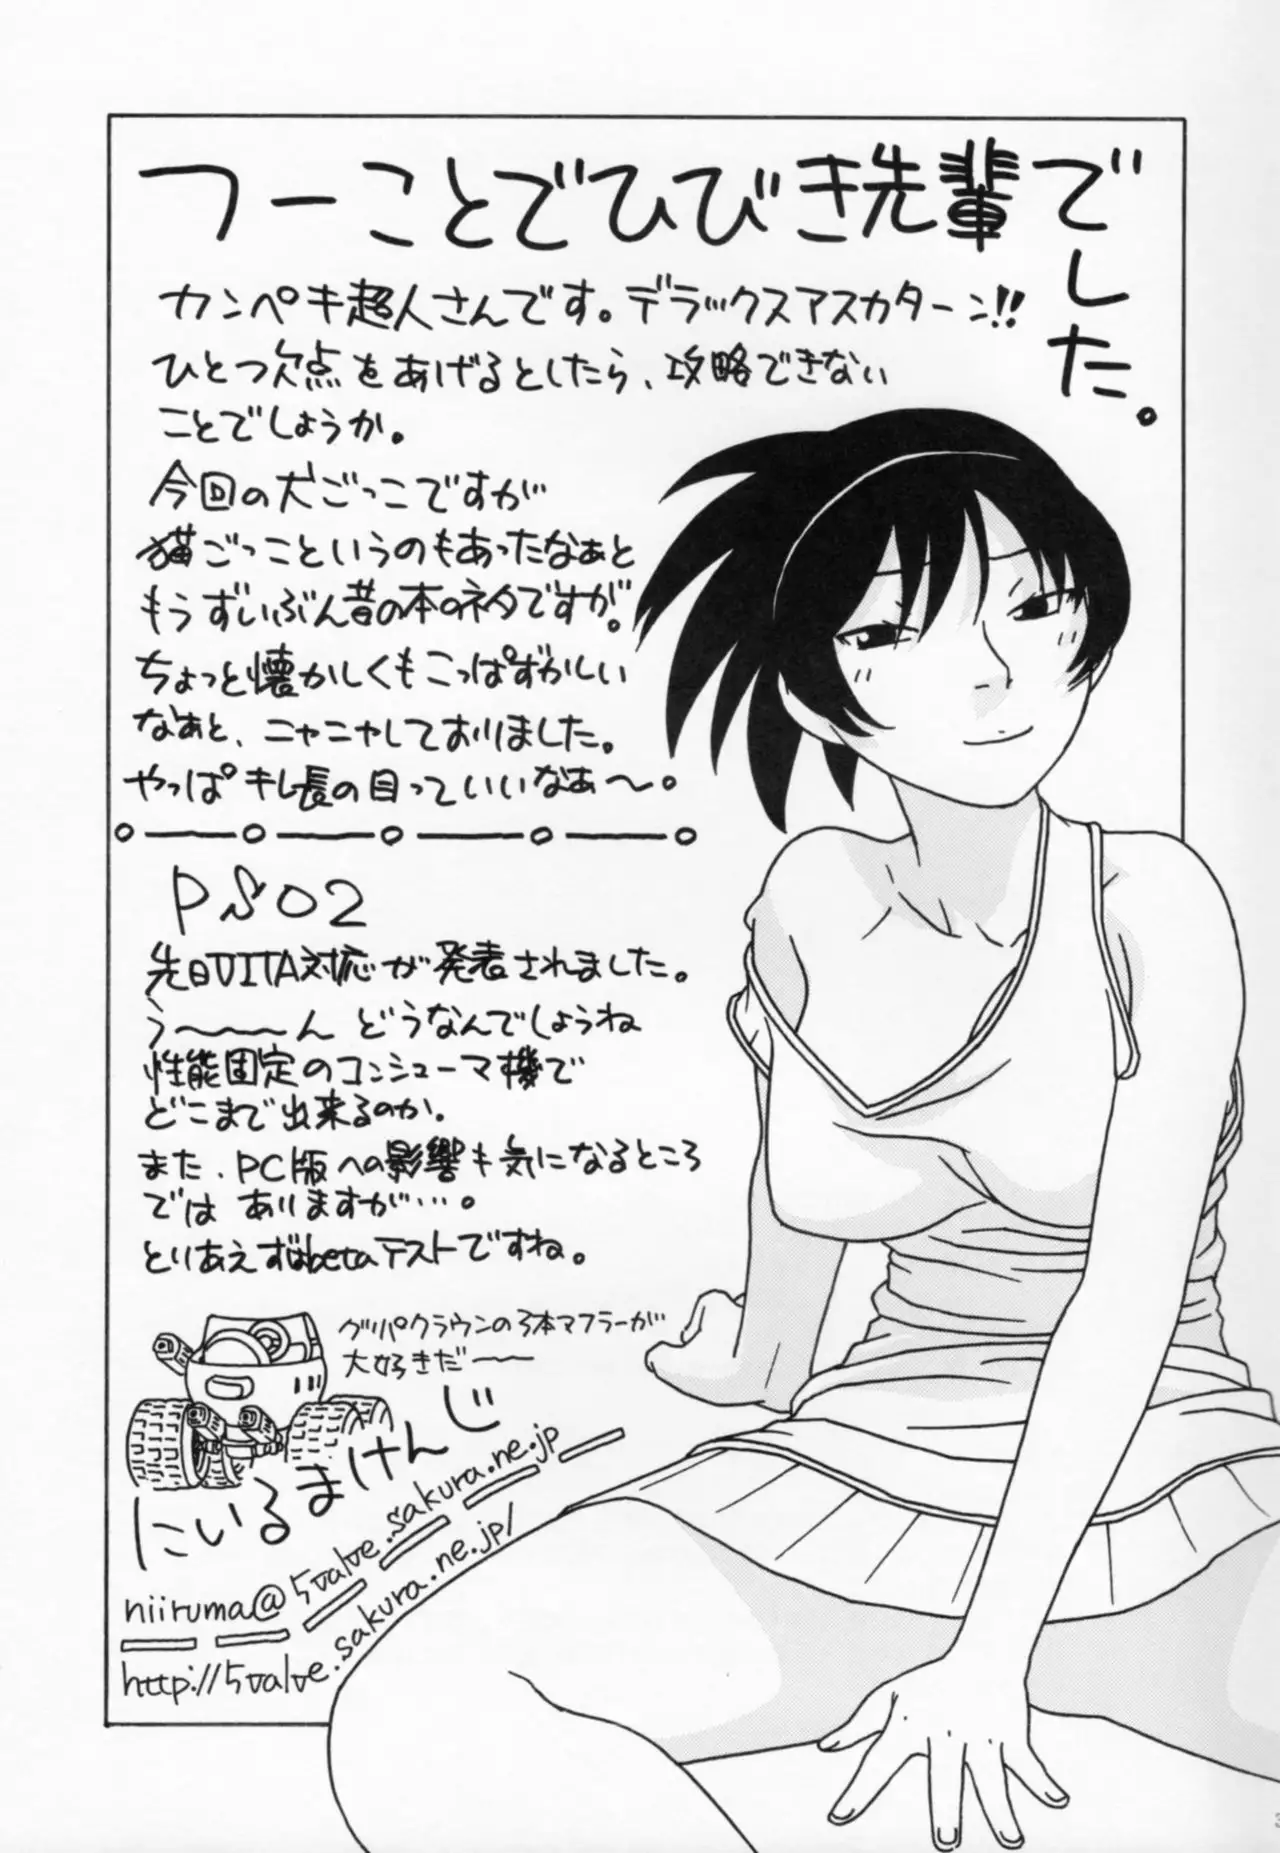 つーことでひびき先輩でした。
カンペキ超人さんです。デラックスアスカターン!!
ひとつ欠点をあげるとしたら、攻略できない
ことでしょうか。
今回の犬ごっこですが
猫ごっこというのもあったなぁと
もうずいぶん昔の本のネタですが。
ちょっと懐かしくもこっぱずかしい
なぁと、ニャニャしておりました。
やっぱキレ長の目っていいなぁ〜。
PSO2
先日VITA対応が発表されました。
う〜〜〜ん どうなんでしょうね
性能固定のコンシューマ機で
どこまで出来るのか。
また、PC版への影響も気になるところ
ではありますが…。
とりあえずはbetaテストですね。
グリパクラウンの3本マフラーが
大好きだ〜〜
にいるまけんじ
niiruma@5valve.sakura.ne.jp
http://5valve.sakura.ne.jp/